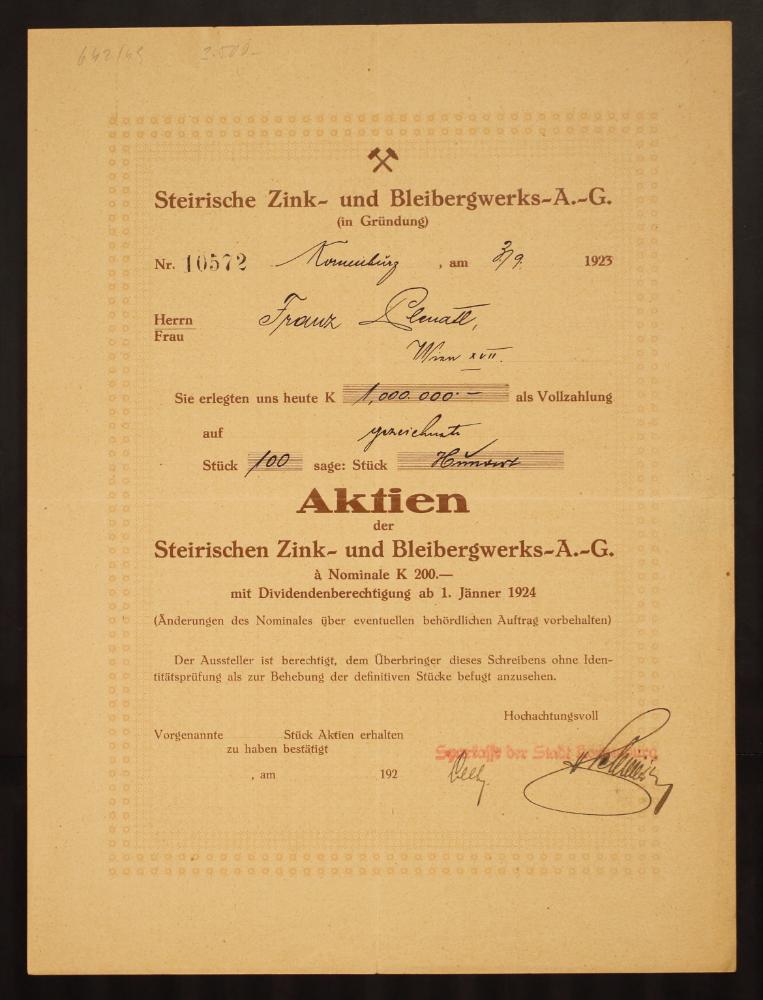 642/49 3.500.-
Steirische Zink- und Bleibergwerks-A.-G.
(in Gründung)
Nr. 10572 Korneuburg , am 3/9. 1923
Herrn Franz
Frau
Wien XVII.
Sie erlegten uns heute K 1,000.000.- als Vollzahlung
auf gezeichnete
Stück 100 sage: Stück Hundert
Aktien
der
Steirischen Zink- und Bleibergwerks-A.-G.
à Nominale K 200.—
mit Dividendenberechtigung ab 1. Jänner 1924
(Änderungen des Nominales über eventuellen behördlichen Auftrag vorbehalten)
Der Aussteller ist berechtigt, dem Überbringer dieses Schreibens ohne Iden-
titätsprüfung als zur Behebung der definitiven Stücke befugt anzusehen.
Hochachtungsvoll
Vorgenannte Stück Aktien erhalten
zu haben bestätigt
Sparkasse der Stadt Korneuburg
, am 192